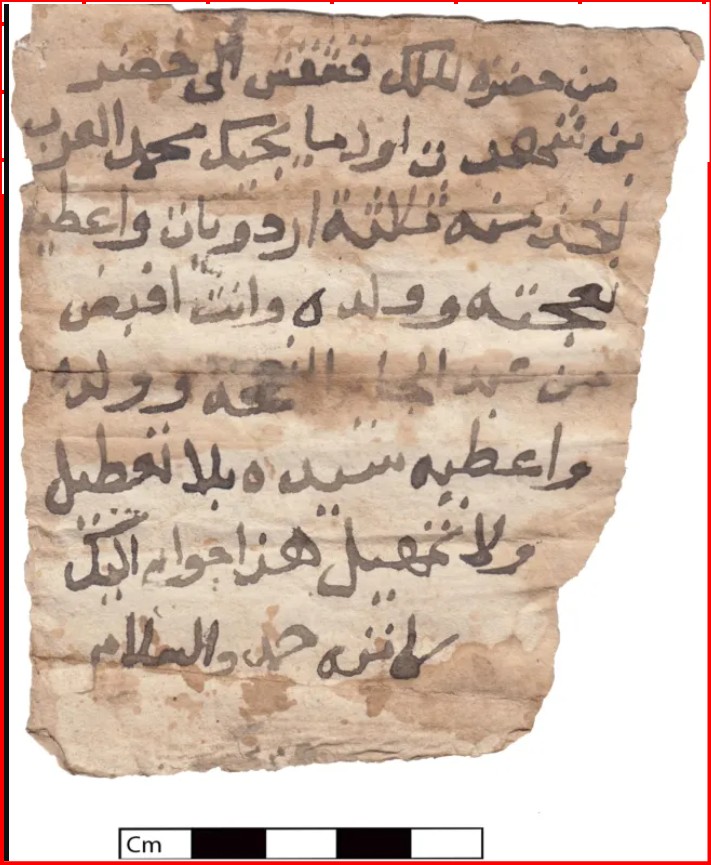 من حضره الملك قشقش الى خضر
بن شهدت اول ما يجيك محمد العرب
تاخذ منه ثلاثة اردويات واعطيه
نعجته وولده وانت اقبض
من عبد الجابر النعجه وولده
واعطيه سيده بلا تعطيل
ولا تمهيل هذا جواب اليك
كاتبه حمد والسلام